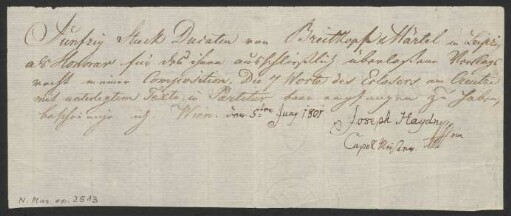 Funfzig Stuck Ducaten von Breitkopf & Härtel in Leipzig
als Honorar für das ihnen ausschließlich überlaßene Verlags
recht meiner Composition. Die 7 Worte des Erlösers am Creutze
mit unterlegtem Texte in Partitur baar empfangen zu haben,
bescheinige ich. Wien. den 5ten Juny 1801
Joseph Haydn
Capellmeister
N. Mus. ep. 2513